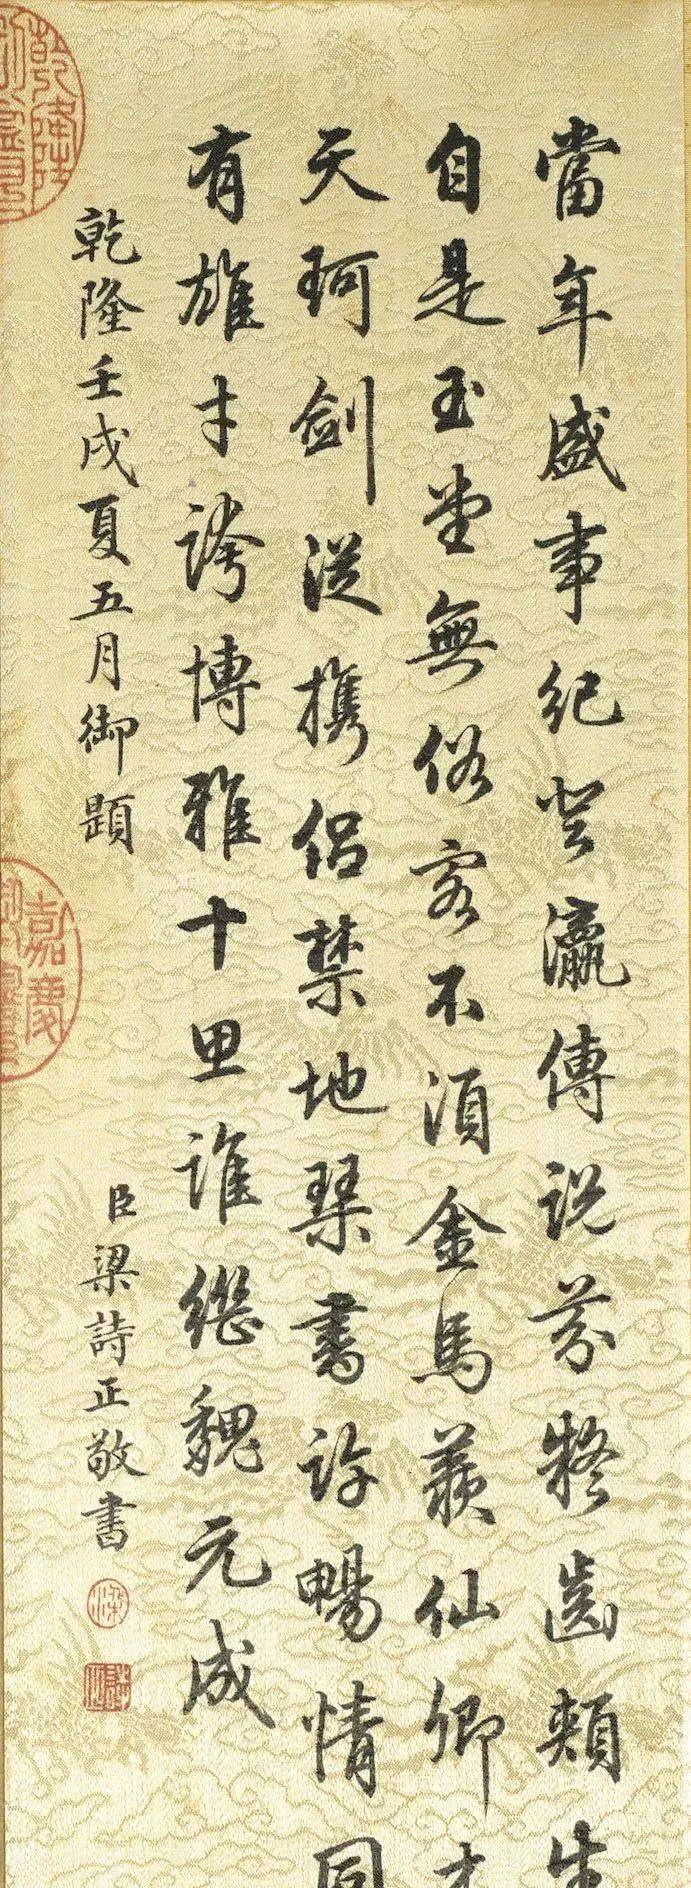 當年盛事紀登瀛傳說芬凝齒頰生
自是玉堂無俗客不須金馬羨仙卿
天珂劍從攜侶禁地琴書許暢情同
有雄才誇博雅十思誰繼魏元成
乾隆壬戌夏五月御題
臣梁詩正敬書
乾隆
嘉慶
梁